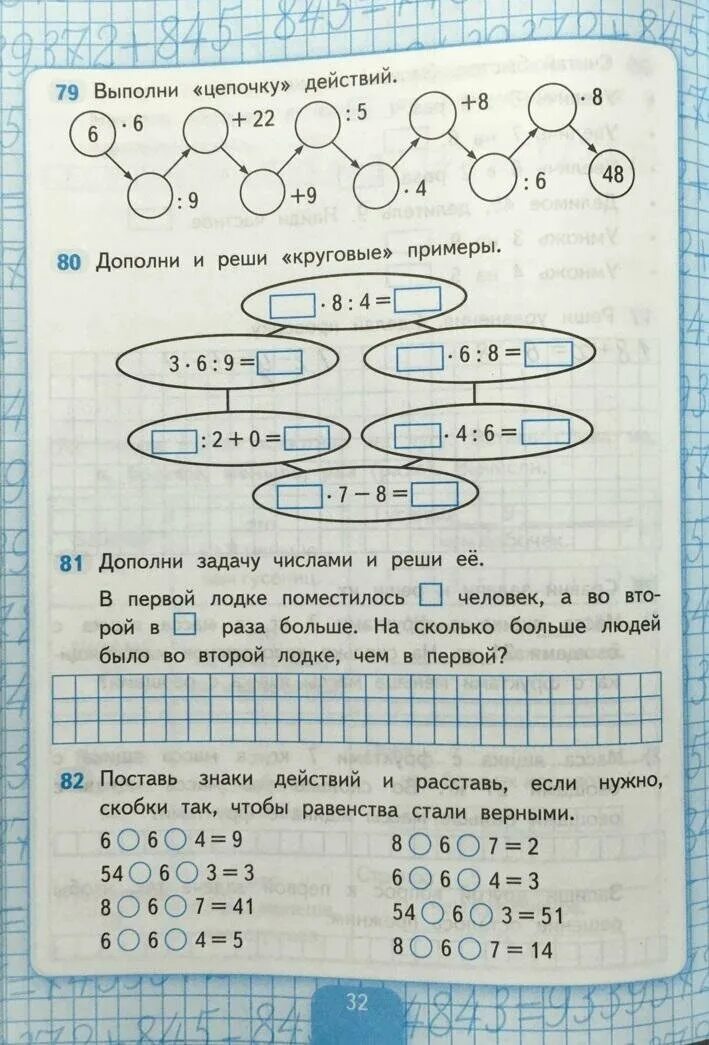 79 Выполни «цепочку» действий.
6 · 6 : 9 + 22 +9 : 5 · 4 +8 : 6 · 8 48
80 Дополни и реши «круговые» примеры.
· 8 : 4 =
3 · 6 : 9 =
· 6 : 8 =
: 2 + 0 =
· 4 : 6 =
· 7 – 8 =
81 Дополни задачу числами и реши её.
В первой лодке поместилось человек, а во вто-
рой в раза больше. На сколько больше людей
было во второй лодке, чем в первой?
82 Поставь знаки действий и расставь, если нужно,
скобки так, чтобы равенства стали верными.
6 6 4 = 9
54 6 3 = 3
8 6 7 = 41
6 6 4 = 5
8 6 7 = 2
6 6 4 = 3
54 6 3 = 51
8 6 7 = 14
32